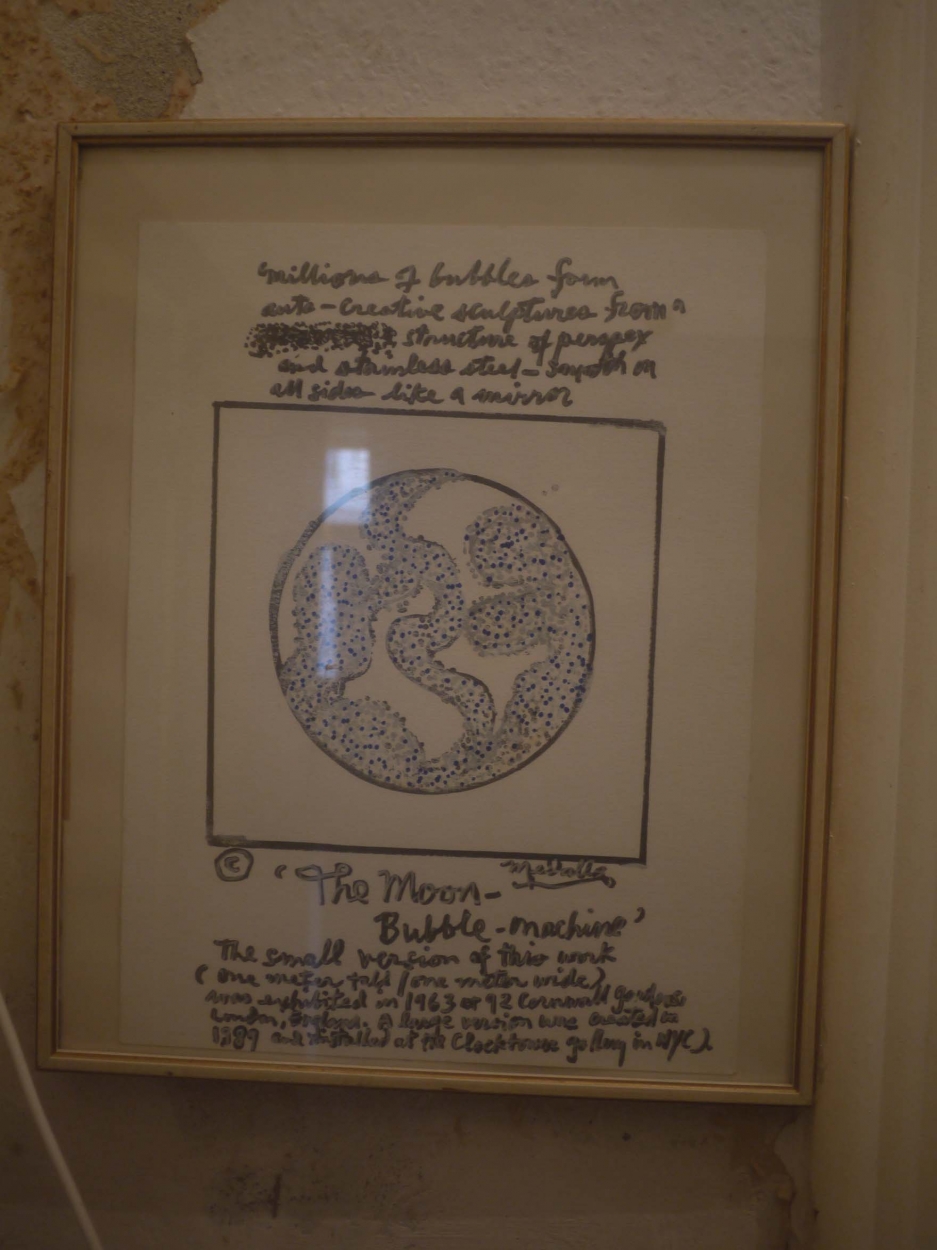 'millions of bubbles form
auto-creative sculptures from a
structure of perspex
and stainless steel - smooth on
all sides like a mirror
© Medalla
'The Moon-
Bubble-machine'
The small version of this work
(one meter tall/one meter wide)
was exhibited in 1963 at 92 Cornwall gardens
London, England. A large version was created in
1989 and installed at the Clocktower gallery in NYC).